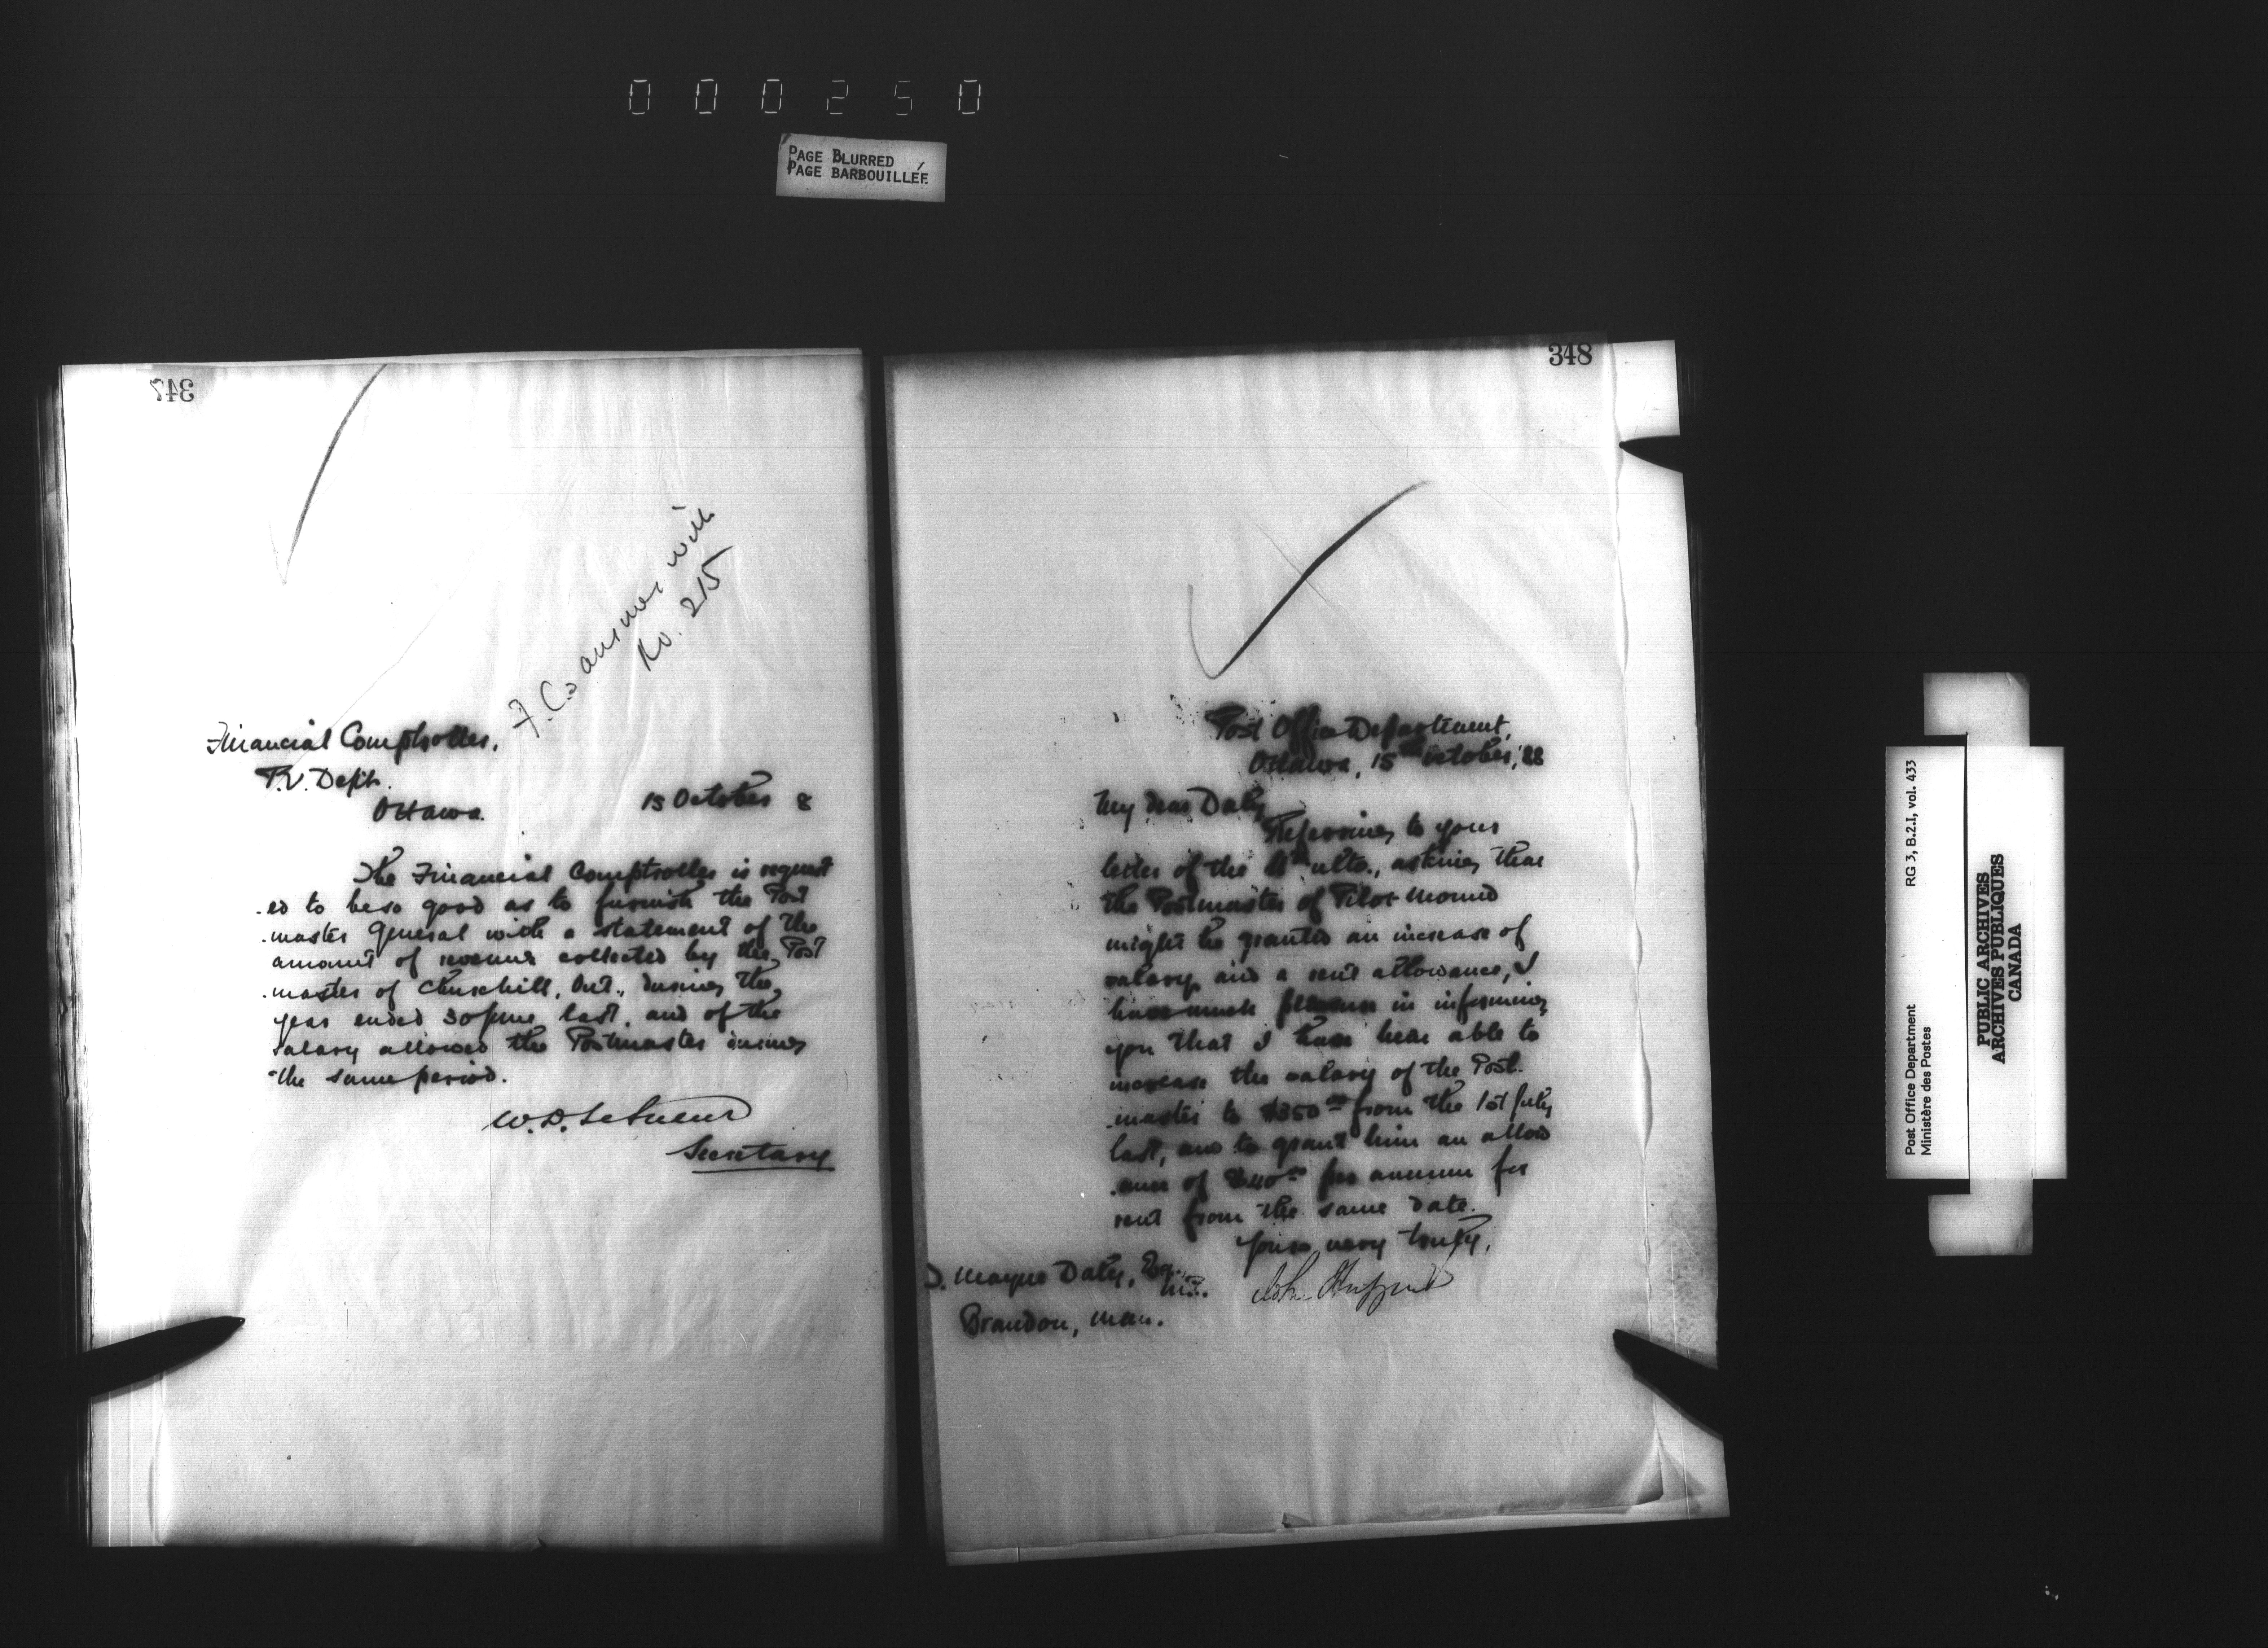 000250
PAGE BLURRED
PAGE BARBOUILLÉE
347
F.C.'s answer with
No. 215
Financial Comptroller,
P.O. Dept.
Ottawa. 15 October 8
The Financial Comptroller is request
.ed to be so good as to furnish the Post
.master General with a statement of the
amount of revenue collected by the Post
.master of Churchill, Ont., during the
year ended 30 June last, and of the
salary allowed the Postmaster during
the same period.
W.D. LeSueur
Secretary
348
Post Office Department,
Ottawa, 15th October, '88
My dear Daly,
Referring to your
letter of the ulto., asking that
the Postmaster of Pilot Mound
might be granted an increase of
salary and a rent allowance, I
have much pleasure in informing
you that I have been able to
increase the salary of the Post
.master to $350 00 from the 1st July
last, and to grant him an allow
.ance of $40 00 per annum for
rent from the same date.
Yours very truly,
John Haggart
D. Mayne Daly, Esq.,
M.P.
Brandon, Man.
Post Office Department RG 3, B.2.I, vol. 433
Ministère des Postes
PUBLIC ARCHIVES
ARCHIVES PUBLIQUES
CANADA